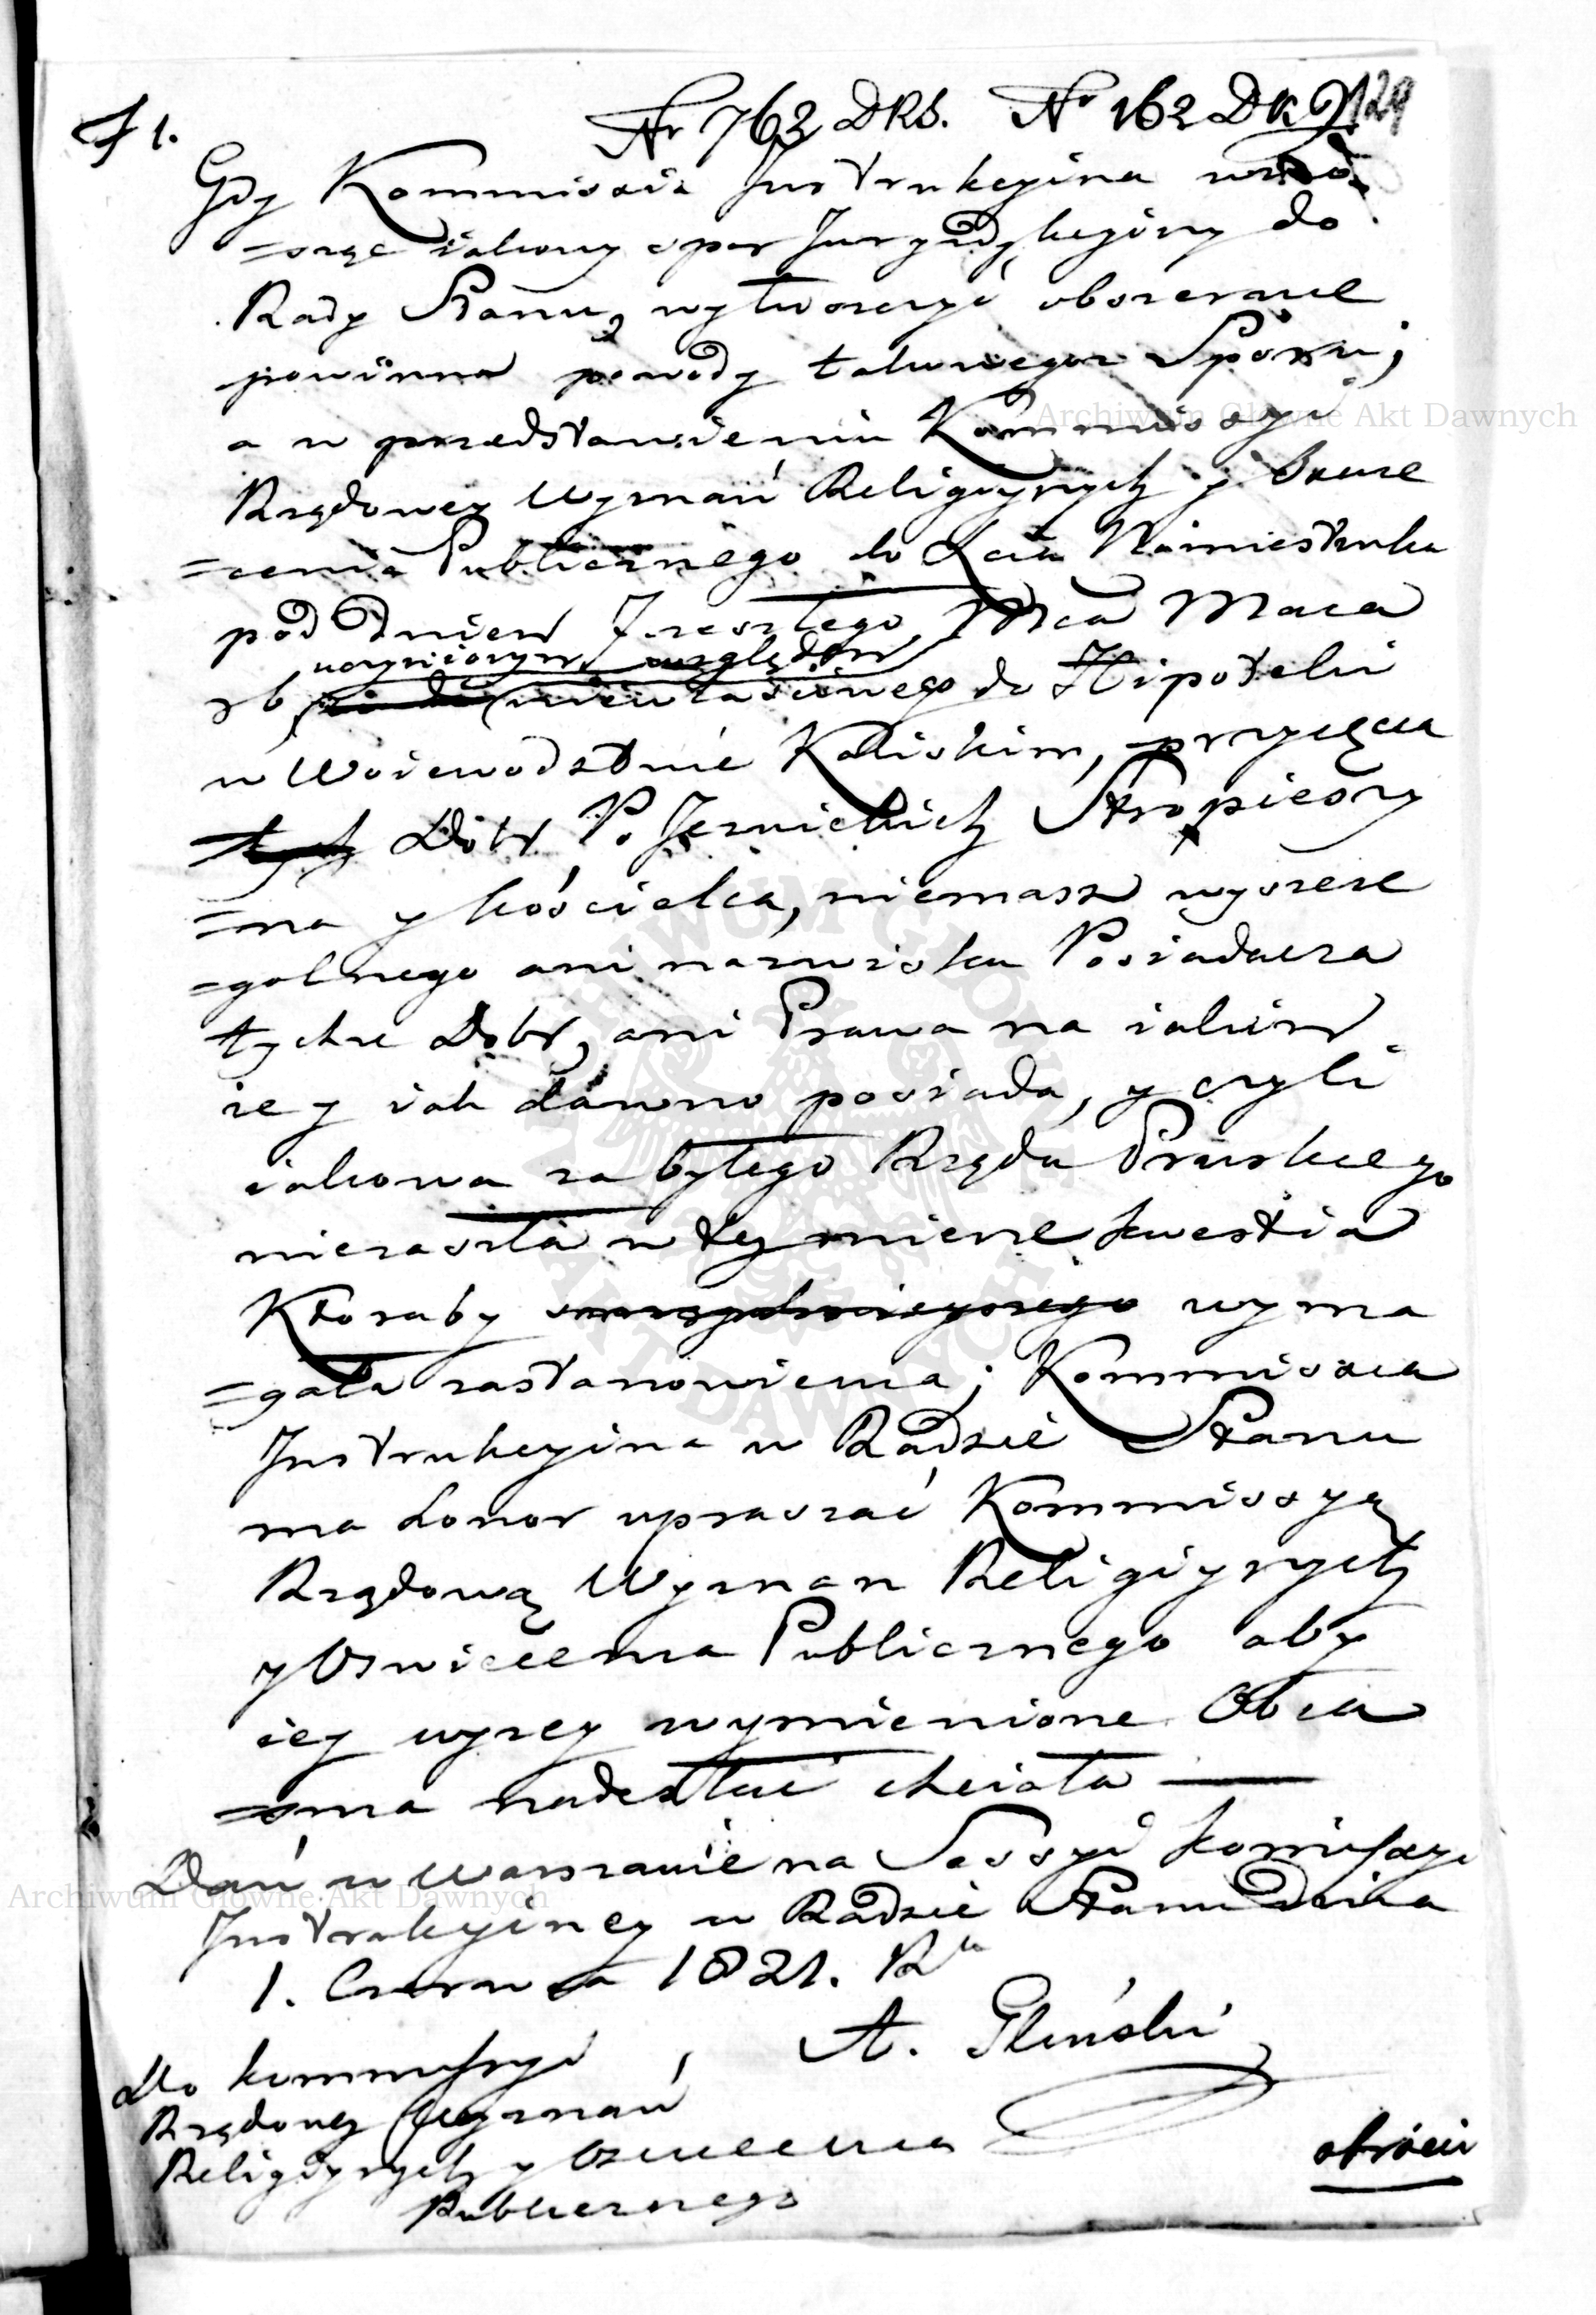 F 1.
Nr 762 DRS. Nr 162 D.K.J 129
Gdy Kommissia Instrukcyina wno
=sząc iakowy spor Juryzdykcyiny do
Rady Stanu, wytłoszczyć obszernie
powinna powody takowegoz Sporu;
a w przedstawieniu Kommissyi
Rządowey Wyznań Religiynych y Oswie
=cenia Publicznego do Xcia Namiestnika
pod Dniem Zeszłego Mca Maca
uczynionym względem
26 wciełaiącego do Hipoteki
w Woiewodztwie Kaliskim,
Dóbr P. Jezuickich Skropieszy
=na y kościelca, niemasz wyszcze
=golnego ani nazwiska Posiadacza
tychze Dobr, ani Prawa na iakim
ie y iak dawno posiada, y czyli
iakowa za byłego Rządu Pruskiego
niezaszła w tey mierze kwestia
Ktoraby wyma
=gała zastanowienia; Kommissia
Instrukcyina w Radzie Stanu
ma honor upraszać Kommissyą
Rządową Wyznan Religiynych
y Oswiecenia Publicznego aby
iey wyzey wymienione Obia
=snia nadesłać chciała —
Dań w Warszawie na Sessyi kommissyi
Instrukcyiney w Radzie Stanu Dnia
1. Czerwca 1821. Rku
A. Gliński
Do kommissyi
Rządowey Wyznań
Religiynych y Oswiecenia
Publicznego
obrócić
Archiwum Główne Akt Dawnych
Archiwum Główne Akt Dawnych
ARCHIWUM GŁÓWNE AKT DAWNYCH